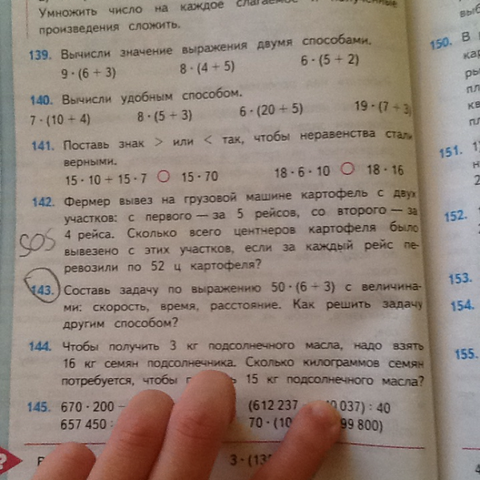 Умножить число на каждое
произведения сложить.
139. Вычисли значение выражения двумя способами.
9 · (6 + 3) 8 · (4 + 5) 6 · (5 + 2)
140. Вычисли удобным способом.
7 · (10 + 4) 8 · (5 + 3) 6 · (20 + 5) 19 · (7 + 3)
141. Поставь знак > или < так, чтобы неравенства стали
верными.
15 · 10 + 15 · 7 15 · 70 18 · 6 · 10 18 · 16
142. Фермер вывез на грузовой машине картофель с двух
участков: с первого — за 5 рейсов, со второго — за
SOS 4 рейса. Сколько всего центнеров картофеля было
вывезено с этих участков, если за каждый рейс пе-
ревозили по 52 ц картофеля?
143. Составь задачу по выражению 50 · (6 + 3) с величина-
ми: скорость, время, расстояние. Как решить задачу
другим способом?
144. Чтобы получить 3 кг подсолнечного масла, надо взять
16 кг семян подсолнечника. Сколько килограммов семян
потребуется, чтобы 15 кг подсолнечного масла?
145. 670 · 200 (612 237 0 037) : 40
657 450 : 70 · (10 99 800)
3 · (13
150. В
151. 1)
152.
153.
154.
155.